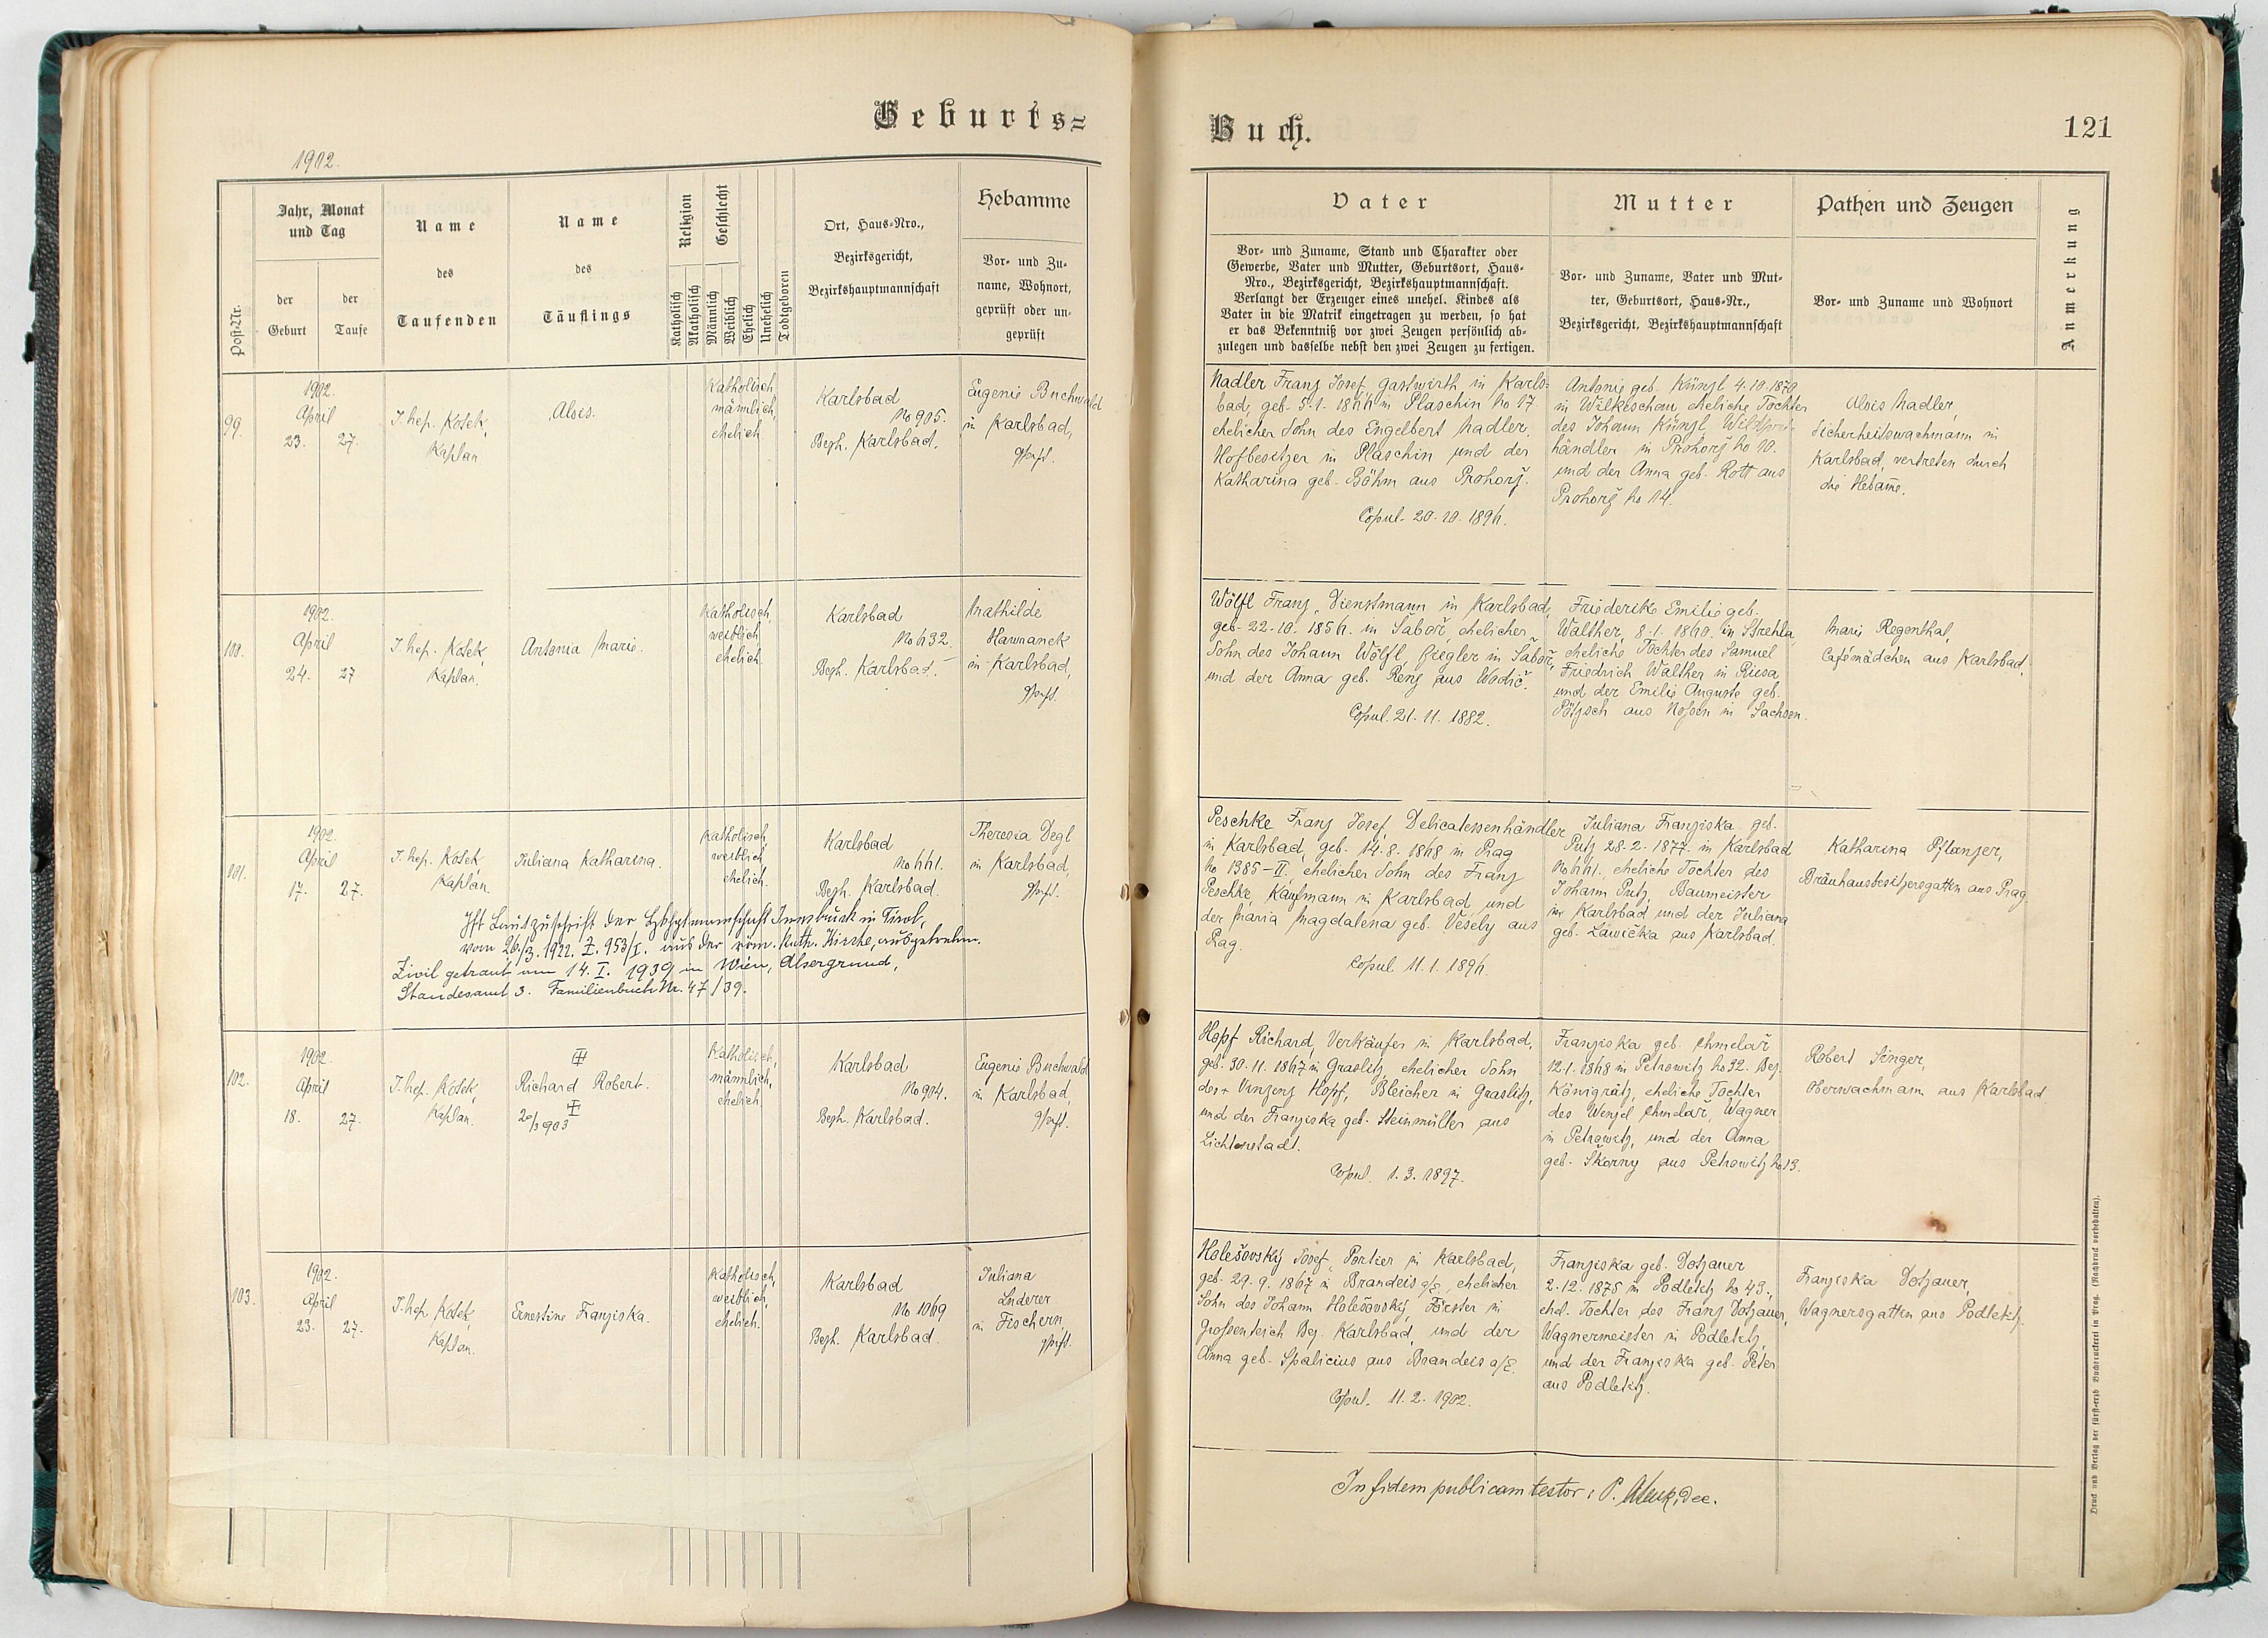 Geburts=
Buch.
121
1902.
Post-Nr.
Jahr, Monat
und Tag
der
Geburt
der
Taufe
Name
des
Taufenden
Name
des
Täuflings
Religion
Katholisch
Akatholisch
Geschlecht
Männlich
Weiblich
Ehelich
Unehelich
Todtgeboren
Ort, Haus-Nro.,
Bezirksgericht,
Bezirkshauptmannschaft
Hebamme
Vor- und Zu-
name, Wohnort,
geprüft oder un-
geprüft
Vater
Vor- und Zuname, Stand und Charakter oder
Gewerbe, Vater und Mutter, Geburtsort, Haus-
Nro., Bezirksgericht, Bezirkshauptmannschaft.
Verlangt der Erzeuger eines unehel. Kindes als
Vater in die Matrik eingetragen zu werden, so hat
er das Bekenntniß vor zwei Zeugen persönlich ab-
zulegen und dasselbe nebst den zwei Zeugen zu fertigen.
Mutter
Vor- und Zuname, Vater und Mut-
ter, Geburtsort, Haus-Nr.,
Bezirksgericht, Bezirkshauptmannschaft
Pathen und Zeugen
Vor- und Zuname und Wohnort
Anmerkung
99.
1902.
April
23. 27.
J. hep. Kosek,
Kaplan
Alois.
Katholisch,
männlich,
ehelich
Karlsbad
No 905.
Bezh. Karlsbad.
Eugenie Buchwald
in Karlsbad,
gepft.
Nadler Franz Josef, Gastwirth in Karls-
bad, geb. 5.1. 1866 in Plaschin No 17
ehelicher Sohn des Engelbert Nadler,
Hofbesitzer in Plaschin und der
Katharina geb. Böhm aus Prohorž.
Copul. 20.10.1896.
Antonie geb. Künzl 4.10.1870
in Wilkeschau, eheliche Tochter
des Johann Künzl
händler in Prohorž No 10.
und der Anna geb. Rott aus
Prohorž No 14.
Alois Nadler,
Sicherheitswachmann in
Karlsbad, vertreten durch
die Hebame.
100.
1902.
April
24. 27
J. hep. Kosek,
Kaplan.
Antonia Marie.
Katholisch,
weiblich
ehelich.
Karlsbad
No 632.
Bezh. Karlsbad.
Mathilde
Hawranek
in Karlsbad,
gepft.
Wölfl Franz, Dienstmann in Karlsbad,
geb. 22.10. 1856. in Saboř, ehelicher
Sohn des Johann Wölfl, Ziegler in Sabor,
und der Anna geb. Renz aus Wodič.
Copul. 21.11.1882.
Friederike Emilie geb.
Walther, 8.1. 1860. in Strehla,
eheliche Tochter des Samuel
Friedrich Walther in Riesa
und der Emilie Auguste geb.
Pötzsch aus Noßen in Sachsen.
Marie Regenthal,
Cafémädchen aus Karlsbad.
101.
1902.
April
17. 27.
J. hep. Kosek,
Kaplan.
Juliana Katharina.
Katholisch
weiblich
ehelich.
Karlsbad
No 661.
Bezh. Karlsbad.
Theresia Degl
in Karlsbad,
gepft.
Ist laut Zuschrift der Bzkhptmannschaft Innsbruck in Tirol,
vom 26/3. 1922. Z. 953/I. aus der röm. kath. Kirche, ausgetreten.
Zivil getraut am 14. I. 1939 in Wien, Alsergrund,
Standesamt 3. Familienbuch Nr. 47/39.
Peschke Franz Josef, Delicatessenhändler
in Karlsbad, geb. 14.8. 1868 in Prag
No 1385-II, ehelicher Sohn des Franz
Peschke, Kaufmann in Karlsbad und
der Maria Magdalena geb. Vesely aus
Prag.
Copul 11.1.1896.
Juliana Franziska geb.
Putz 28.2.1877. in Karlsbad
No 661. eheliche Tochter des
Johann Putz, Baumeister
in Karlsbad und der Juliana
geb. Lawička aus Karlsbad.
Katharina Pflanzer,
Bräuhausbesitzersgattin aus Prag.
102.
1902.
April
18. 27.
J. hep. Kosek,
Kaplan.
Richard Robert.
20/3 903
Katholisch,
männlich,
ehelich.
Karlsbad
No 904.
Bezh. Karlsbad.
Eugenie Buchwald
in Karlsbad,
gepft.
Hopf Richard, Verkäufer in Karlsbad,
geb. 30.11.1867 in Graslitz, ehelicher Sohn
des + Vinzenz Hopf, Bleicher in Graslitz,
und der Franziska geb. Steinmüller aus
Lichtenstadt.
Copul. 1.3.1897.
Franziska geb. Chmelař
12.1.1868 in Petrowitz No 32. Bez.
Königgrätz, eheliche Tochter
des Wenzel Chmelař, Wagner
in Petrowitz, und der Anna
geb. Skorny aus Petrowitz No 13.
Robert Singer,
Oberwachmann aus Karlsbad.
103.
1902.
April
23. 27.
J. hep. Kosek,
Kaplan.
Ernestine Franziska.
Katholisch,
weiblich,
ehelich.
Karlsbad
No 1069
Bezh. Karlsbad.
Juliana
Lederer
in Fischern,
gepft.
Holešovský Josef, Portier in Karlsbad,
geb. 29.9.1867 in Brandeis a/E, ehelicher
Sohn des Johann Holešovský, Förster in
Großenteich Bez. Karlsbad, und der
Anna geb. Spalicius aus Brandeis a/E.
Copul. 11.2.1902.
Franziska geb. Dotzauer
2.12.1875 in Podletitz No 43.,
ehel. Tochter des Franz Dotzauer,
Wagnermeister in Podletitz,
und der Franziska geb. Peter
aus Podletitz.
Franziska Dotzauer,
Wagnersgattin aus Podletitz.
In fidem publicam testor: P. dec.
Druck und Verlag der fürst-erzb Buchdruckerei in Prag. (Nachdruck vorbehalten).